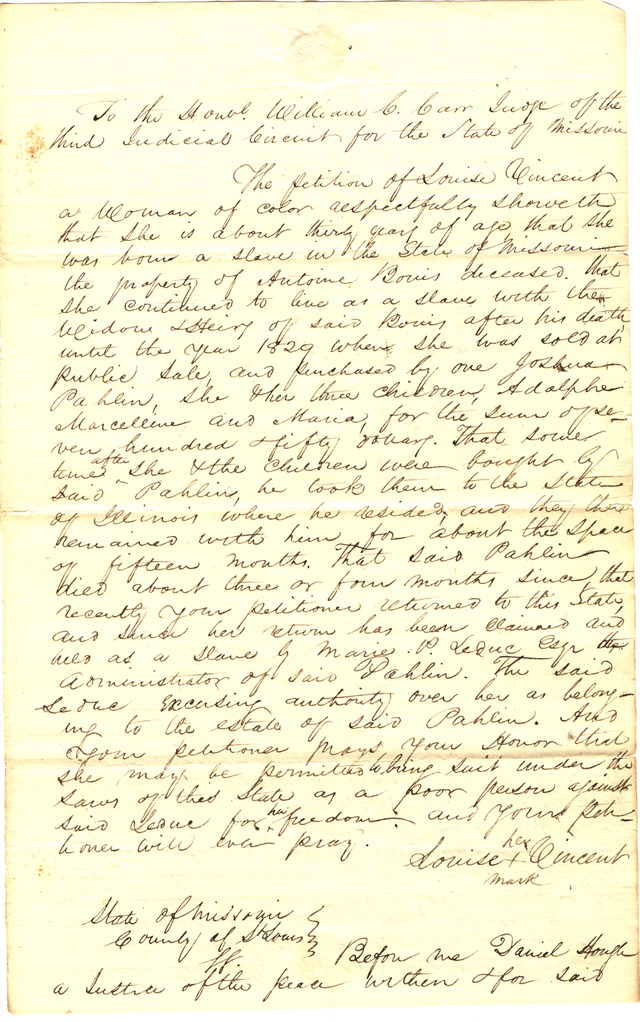 To the Honbl. William C. Carr Judge of the
third Judicial Circuit for the State of Missouri
The petition of Louise Vincent
a Woman of color respectfully sheweth
that she is about thirty years of age, that she
was born a slave in the State of Missouri
the property of Antoine Bouis deceased. that
she continued to live as a slave with the
Widow & Heirs of said Bouis after his death,
until the year 1829 when she was sold at
public sale, and purchased by one Joshua
Pahlin, she & her three children, Adolphe
Marcelline and Maria, for the sum of se-
ven hundred & fifty dollars. That some
time after she & the children were bought by
said Pahlin, he took them to the State
of Illinois where he resided, and they there
remained with him for about the space
of fifteen months. That said Pahlin
died about three or four months since, that
recently your petitioner returned to this State,
and since her return has been claimed and
held as a slave by Marie P. Leduc Esqr the
Administrator of said Pahlin. The said
Leduc Excusing authority over her as belong-
ing to the estate of said Pahlin. And
your petitioner prays your Honor that
she may be permitted to bring suit under the
Laws of this State as a poor person against
said Leduc for her freedom. and your Peti-
tioner will ever pray.
Louise her + Vincent
mark
State of Missouri
County of St Louis
ss.
Before me Daniel Hough
a Justice of the peace within & for said